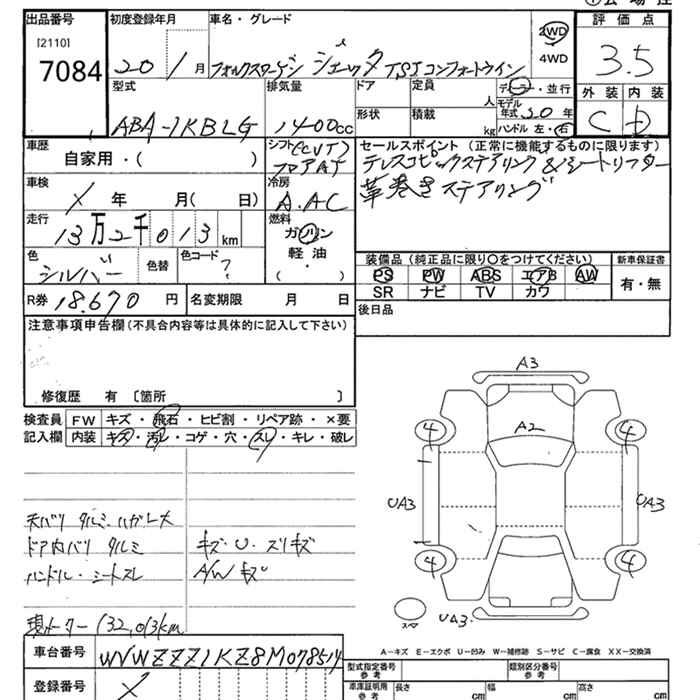 出品番号
[2110]
7084
初度登録年月
20年1月
車名・グレード
フォルクスワーゲン ジェッタ TSIコンフォートライン
2WD
4WD
評価点
3.5
外装 内装
C D
型式
ABA-1KBLG
排気量
1400cc
ドア
形状
定員
人
積載
kg
ディーラー・並行
モデル年式 20年
ハンドル 左・右
車歴
自家用・( )
シフト(CVT)
フロアAT
車検
X年 月( 日)
冷房
A.AC
走行
13万2千013km
燃料
ガソリン
軽油
・
( )
色
シルバー
色替
色コード
?
R券 18,670円
名変期限 月 日
セールスポイント(正常に機能するものに限ります)
テレスコピックステアリング&シートリフター
革巻きステアリング
装備品(純正品に限り○をつけてください)
新車保証書
PS PW ABS エアB AW
SR ナビ TV カワ
有・無
後日品
注意事項申告欄(不具合内容等は具体的に記入して下さい)
修復歴 有 〔箇所 〕
検査員記入欄
FW キズ・飛石・ヒビ割・リペア跡・×要
内装 キズ・汚レ・コゲ・穴・スレ・キレ・破レ
天バリ タルミ・ハガレ大
ドア内バリ タルミ
キズ・U・スリキズ
ハンドル・シートスレ
A/Wキズ
現メーター 132,013km
A3
A2
4 4
UA3 UA3
4 4
スペア
UA3
A-キズ E-エクボ U-凹み W-補修跡 S-サビ C-腐食 XX-交換済
車台番号
WVWZZZ1KZ8M078514
登録番号
X
型式指定番号
参考
類別区分番号
参考
車庫証明用
参考
長さ cm
幅 cm
高さ cm